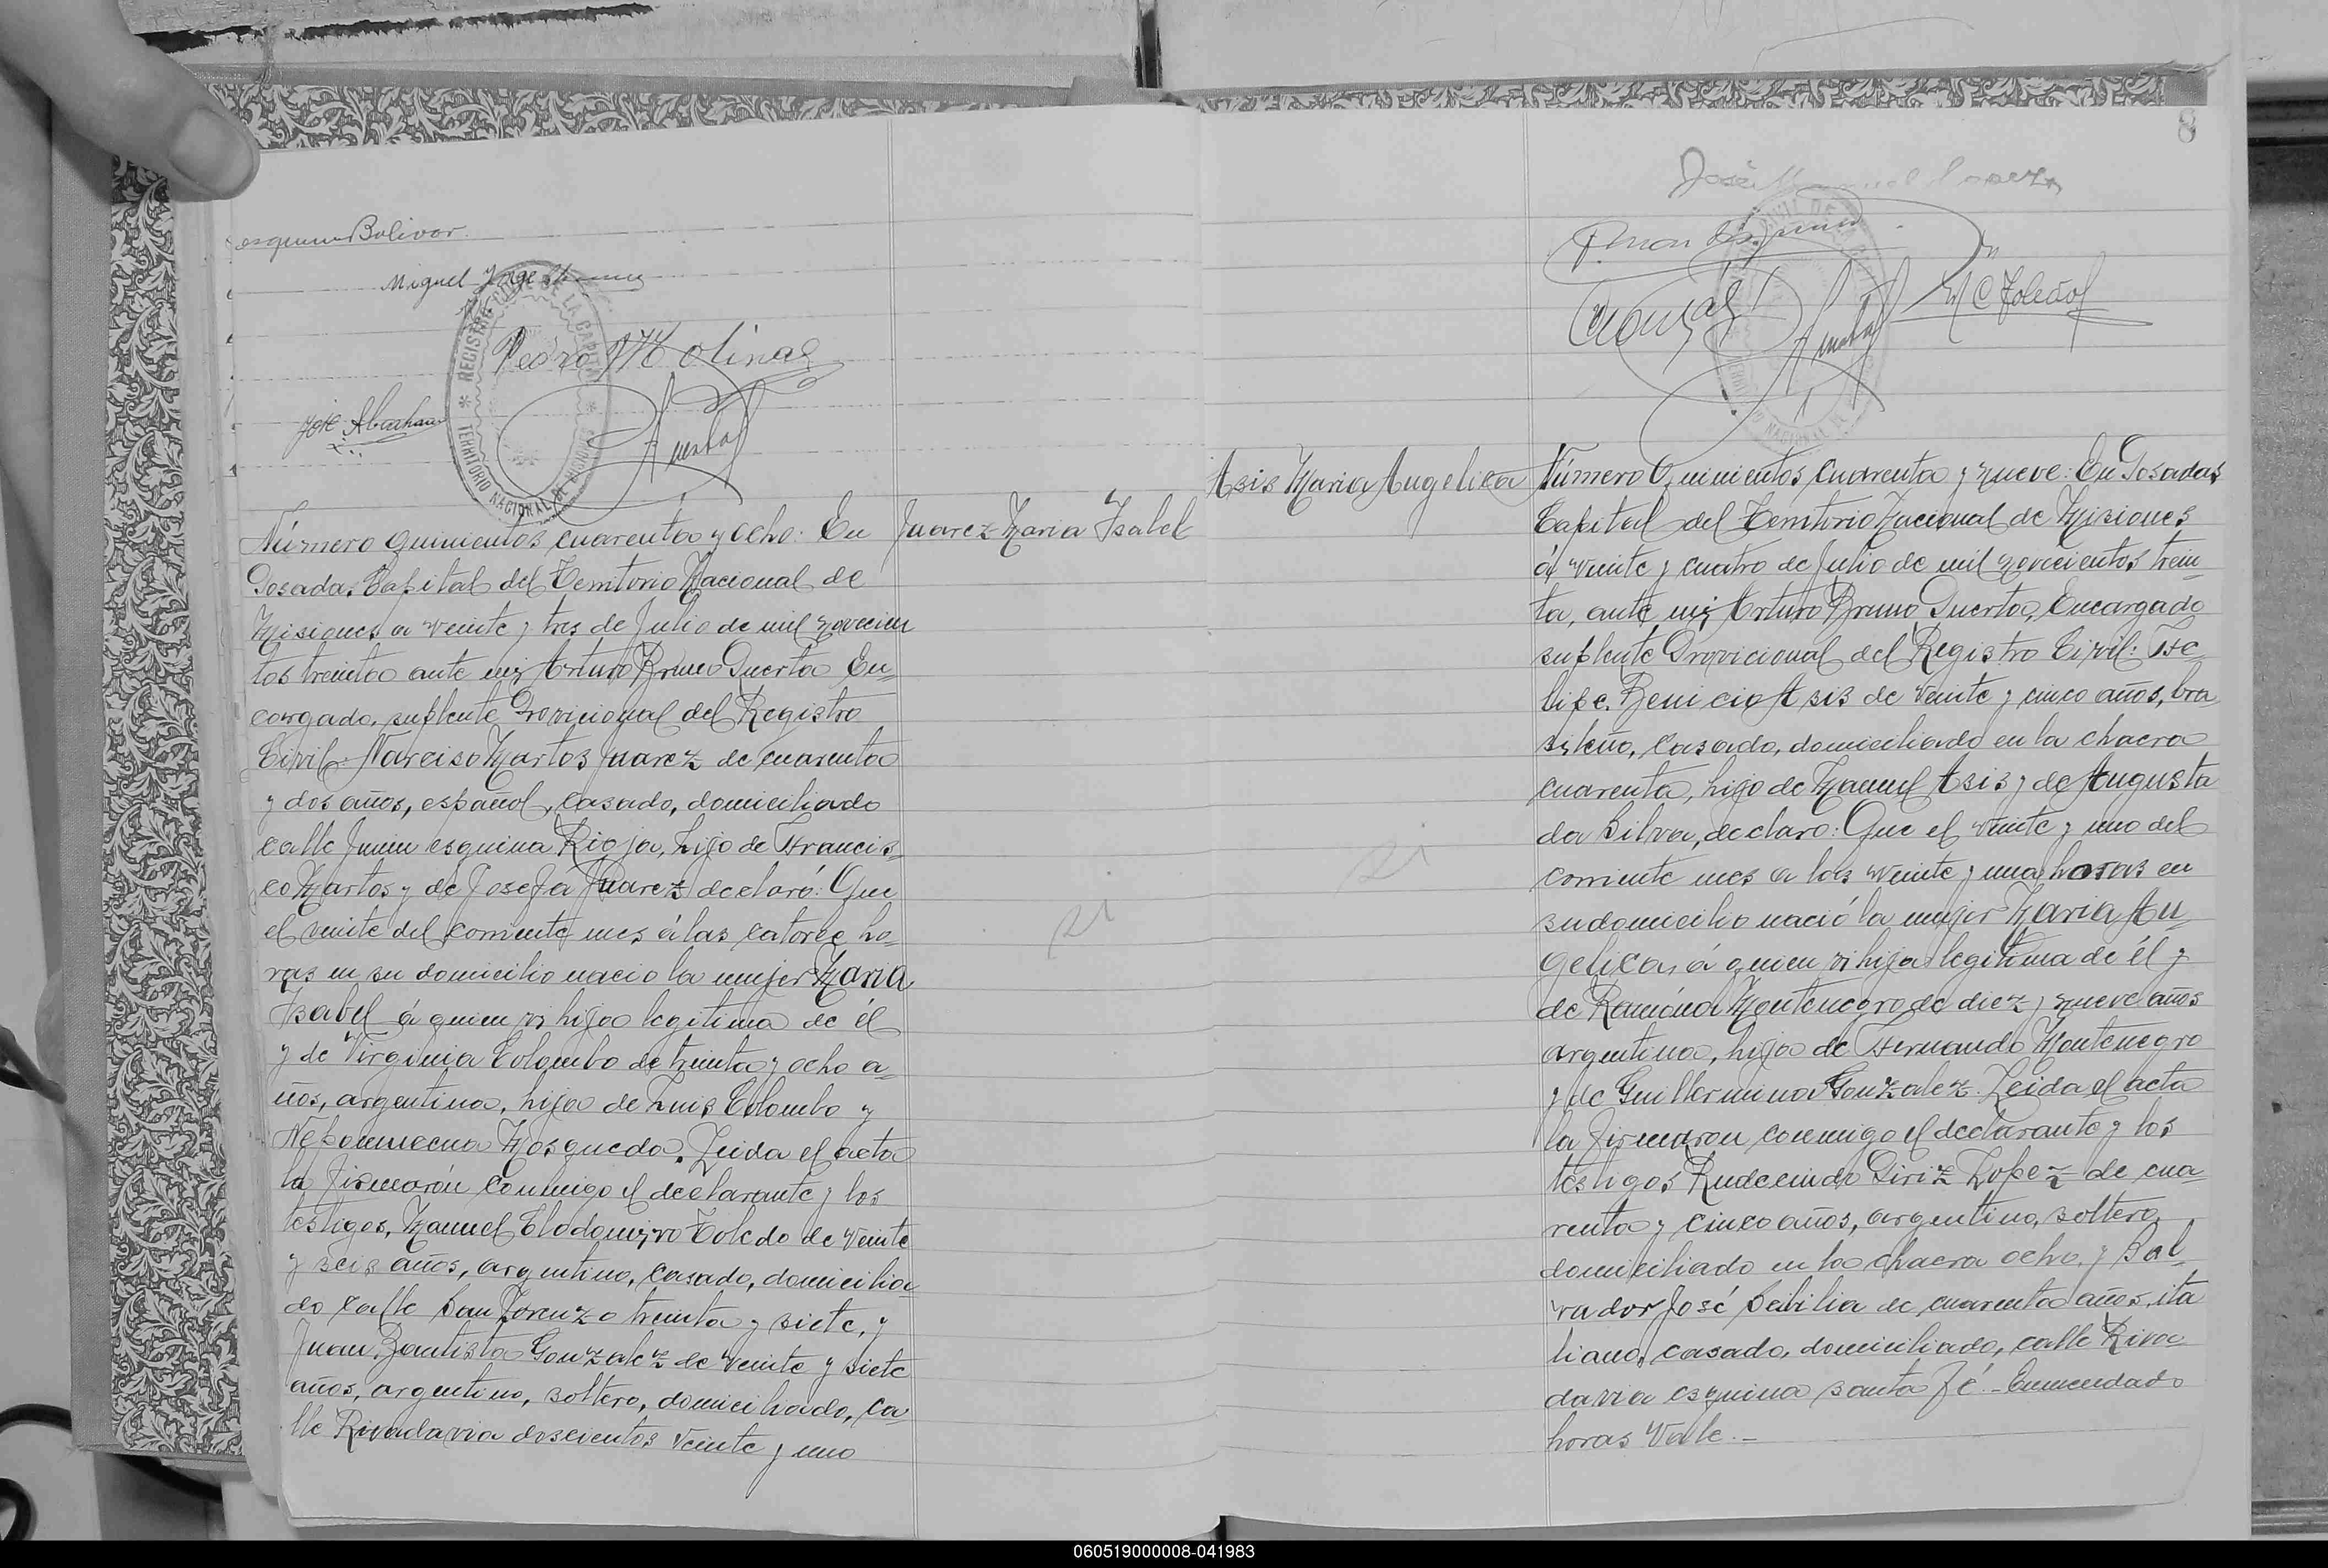 esquina Bolivar.
Miguel Jorge
REGISTRO CIVIL DE LA CAPITAL
TERRITORIO NACIONAL DE MISIONES
Pedro Molinas
José Abraham
Juarez Maria Isabel
Número quinientos cuarenta y ocho: En
Posadas Capital del Territorio Nacional de
Misiones a veinte y tres de Julio de mil novecien
tos treinta ante mi, Arturo Bruno Puerta En-
cargado, suplente Provicional del Registro
Civil: Narciso Martos Juarez de cuarenta
y dos años, español, casado, domiciliado
calle Junin esquina Rioja, hijo de Francis-
co Martos y de Josefa Juarez declaró: Que
el veinte del corriente mes á las catorce ho-
ras en su domicilio nacio la mujer Maria
Isabel á quien vi hija legitima de él
y de Virginia Colombo de treinta y ocho a-
ños, argentina, hija de Luis Colombo y
Nepomucena Mosqueda. Leida el acta
la firmarón conmigo el declarante y los
testigos, Manuel Clodomiro Toledo de veinte
y seis años, argentino, casado, domicilia
do calle San Lorenzo treinta y siete, y
Juan Bautista Gonzalez de veinte y siete
años, argentino, soltero, domiciliado, ca-
lle Rivadavia doscientos veinte y uno
8
José Manuel
M C Toledo
Asis Maria Angelica
Número Quinientos cuarenta y nueve: En Posadas
Capital del Territorio Nacional de Misiones
á veinte y cuatro de Julio de mil novecientos trein-
ta, ante mi, Arturo Bruno Puerta, Encargado
suplente Provicional del Registro Civil: Fe
lipe Benicio Asis de veinte y cinco años, bra
sileño, casado, domiciliado en la chacra
cuarenta, hijo de Manuel Asis y de Augusta
da Silva, declaro: Que el veinte y uno del
corriente mes a las veinte y una horas en
su domicilio nació la mujer Maria An-
gelica, á quien vi hija legitima de él y
de Ramóna Montenegro de diez y nueve años
argentina, hija de Fernando Montenegro
y de Guillermina Gonzalez. Leida el acta
la firmaron conmigo el declarante y los
testigos Rudecindo Giriz Lopez de cua-
renta y cinco años, argentino, soltero,
domiciliado en la chacra ocho, y Sal-
vador José Sibilia de cuarenta años, ita
liano, casado, domiciliado, calle Riva-
davia esquina santa fé.- Enmendado
horas Vale.-
060519000008-041983